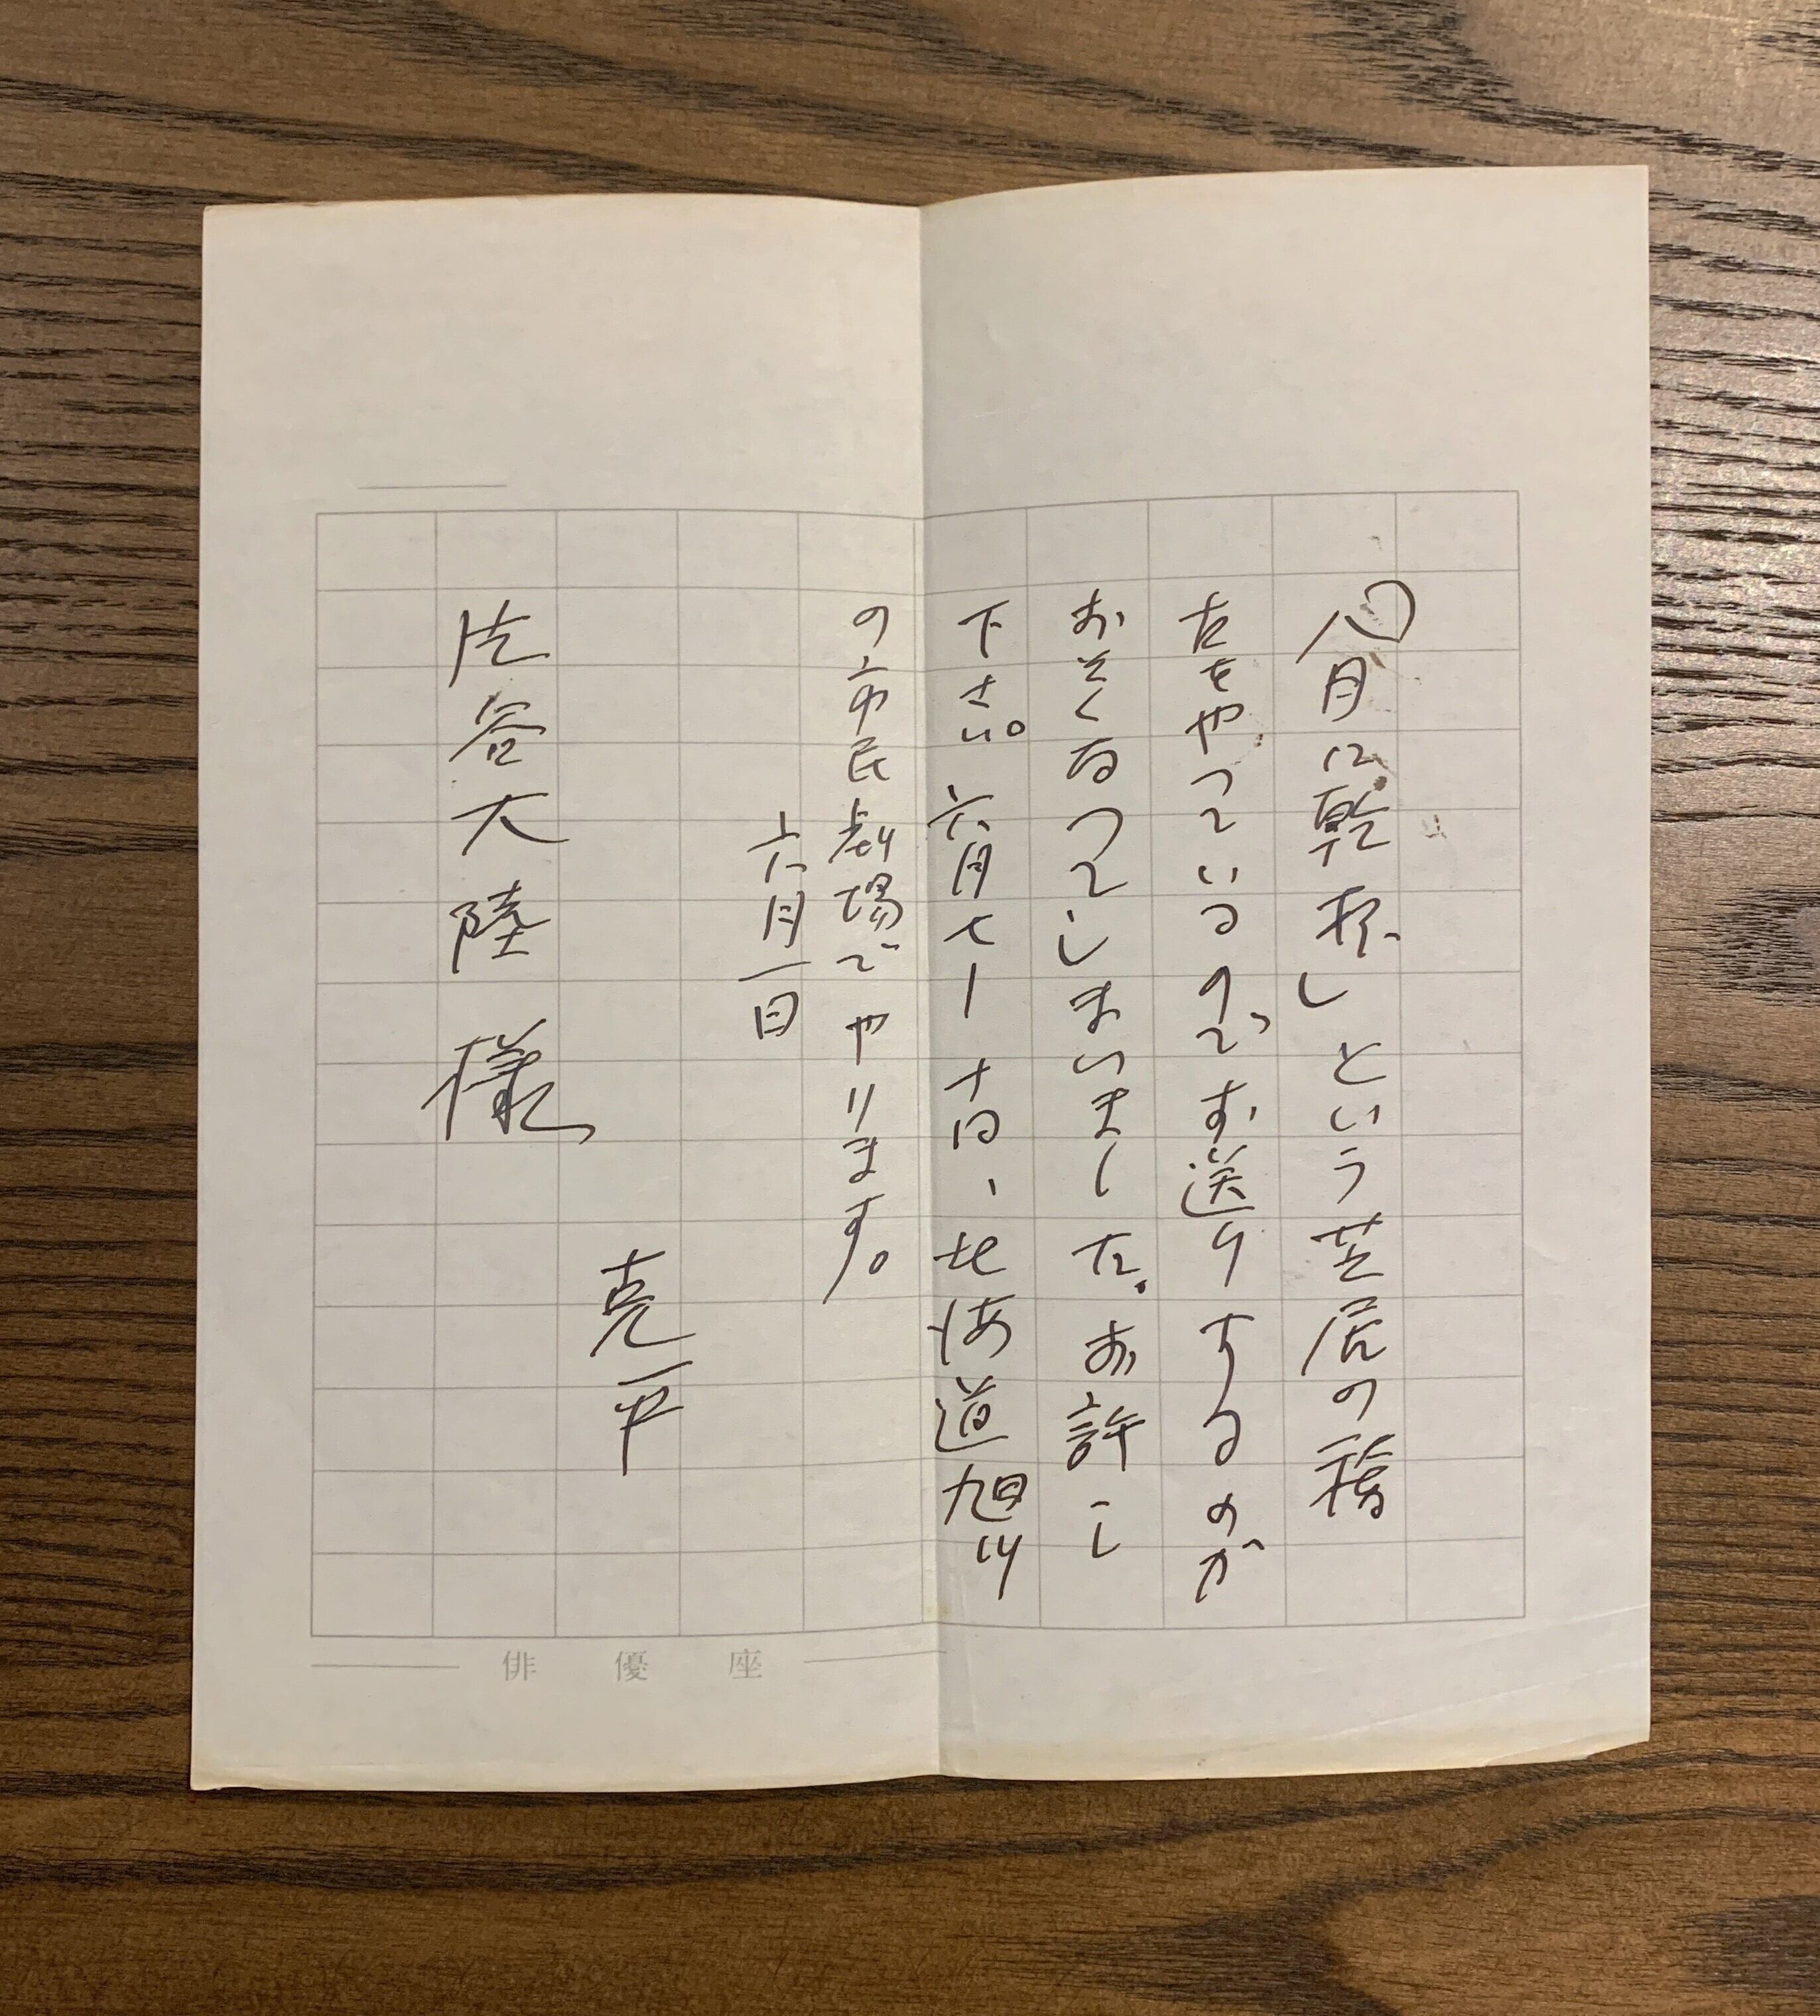 「八月に乾杯」という芝居の稽
古をやっているのでお送りするのが
おそくなってしまいました。お許し
下さい。六月七ー十日、北海道旭川
の市民劇場でやります。
六月一日
克平
片谷大陸様
俳優座